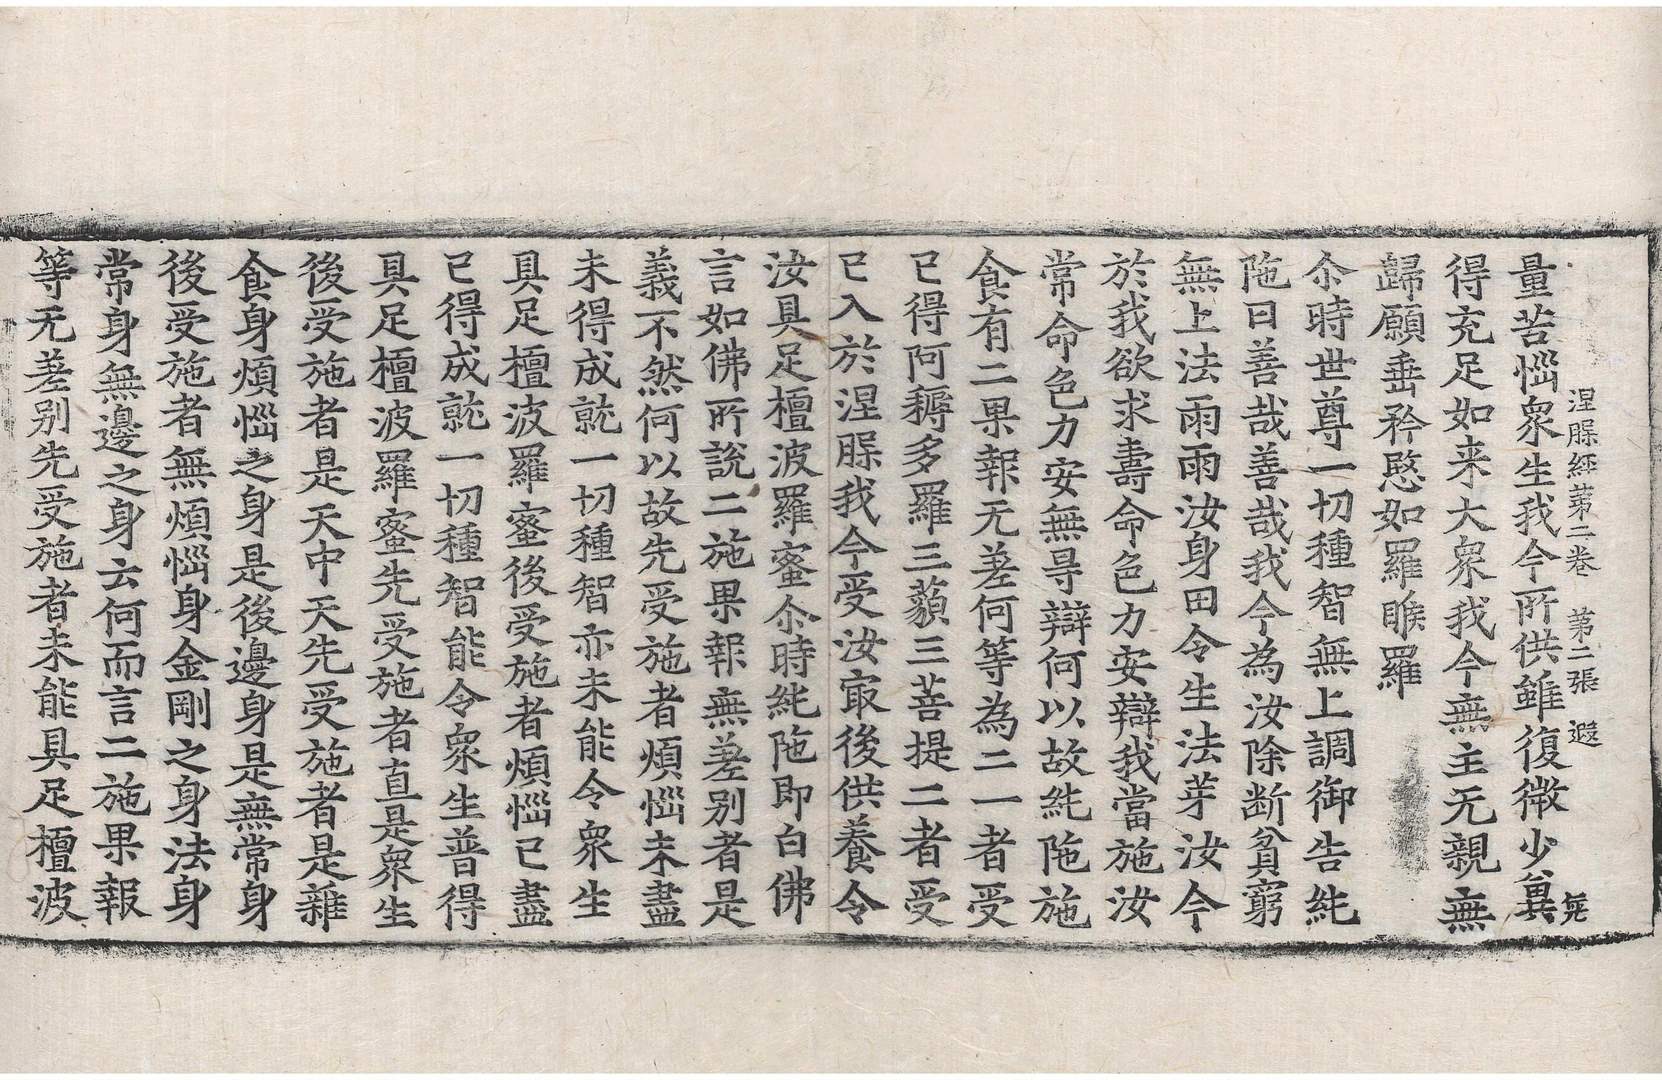 涅槃經第二卷　第二張　遐
量苦惱衆生我今所供雖復微少冀
得充足如来大衆我今無主无親無
歸願垂矜愍如羅睺羅
尒時世尊一切種智無上調御告純
陁曰善哉善哉我今為汝除断貧窮
無上法雨雨汝身田令生法芽汝今
於我欲求壽命色力安辯我當施汝
常命色力安無㝵辯何以故純陁施
食有二果報无差何等為二一者受
已得阿耨多羅三藐三菩提二者受
已入於涅槃我今受汝㝡後供養令
汝具足檀波羅蜜尒時純陁即白佛
言如佛所說二施果報無差別者是
義不然何以故先受施者煩惱未盡
未得成就一切種智亦未能令衆生
具足檀波羅蜜後受施者煩惱已盡
已得成就一切種智能令衆生普得
具足檀波羅蜜先受施者直是衆生
後受施者是天中天先受施者是雜
食身煩惱之身是後邊身是無常身
後受施者無煩惱身金剛之身法身
常身無邊之身云何而言二施果報
等无差別先受施者未能具足檀波